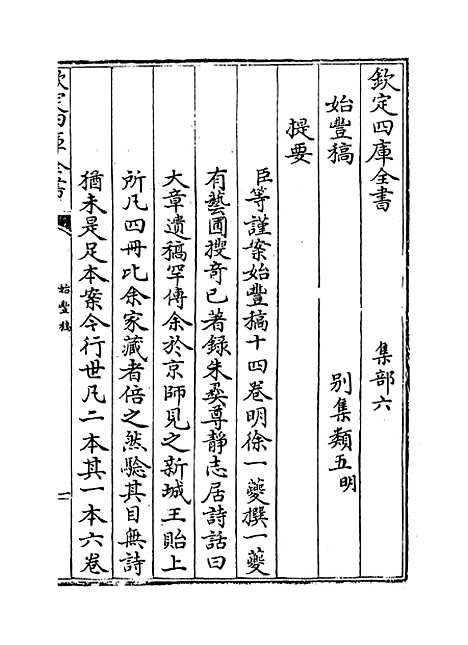 欽定四庫全書 集部六
始豐稿 别集類五明
提要
臣等謹案始豐稿十四卷明徐一夔撰一夔
有藝圃搜奇已著録朱彞尊静志居詩話曰
大章遺稿罕傳余於京師見之新城王貽上
所凡四冊比余家藏者倍之然驗其目無詩
猶未是足本案今行世凡二本其一本六卷
欽定四庫全書
始豐稿
一